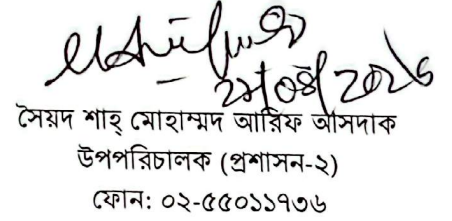 সৈয়দ শাহ্ মোহাম্মদ আরিফ আসদাক
উপপরিচালক (প্রশাসন-২)
ফোন: ০২-৫৫০১১৭৩৬